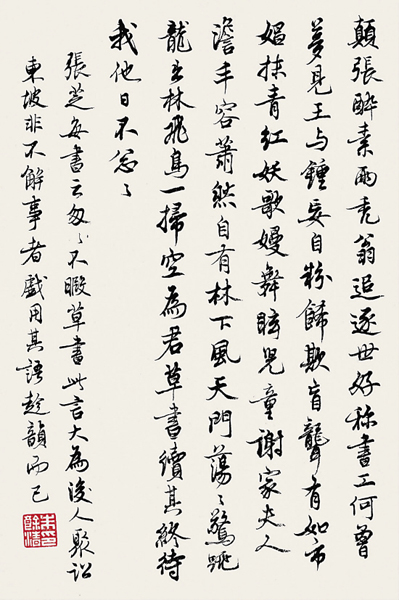 顛張醉素兩禿翁追逐世好称書工何曾
夢見王与鍾妄自粉飾欺盲聾有如市
娼抹青紅妖歌嫚舞眩兒童謝家夫人
澹丰容蕭然自有林下風天門蕩〻驚跳
龍出林飛鳥一掃空為君草書續其終待
我他日不怱〻
張芝每書云匆〻不暇草書此言大為後人聚訟
東坡非不解事者戲用其語趁韻而已